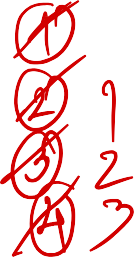 1
2 1
3 2
4 3